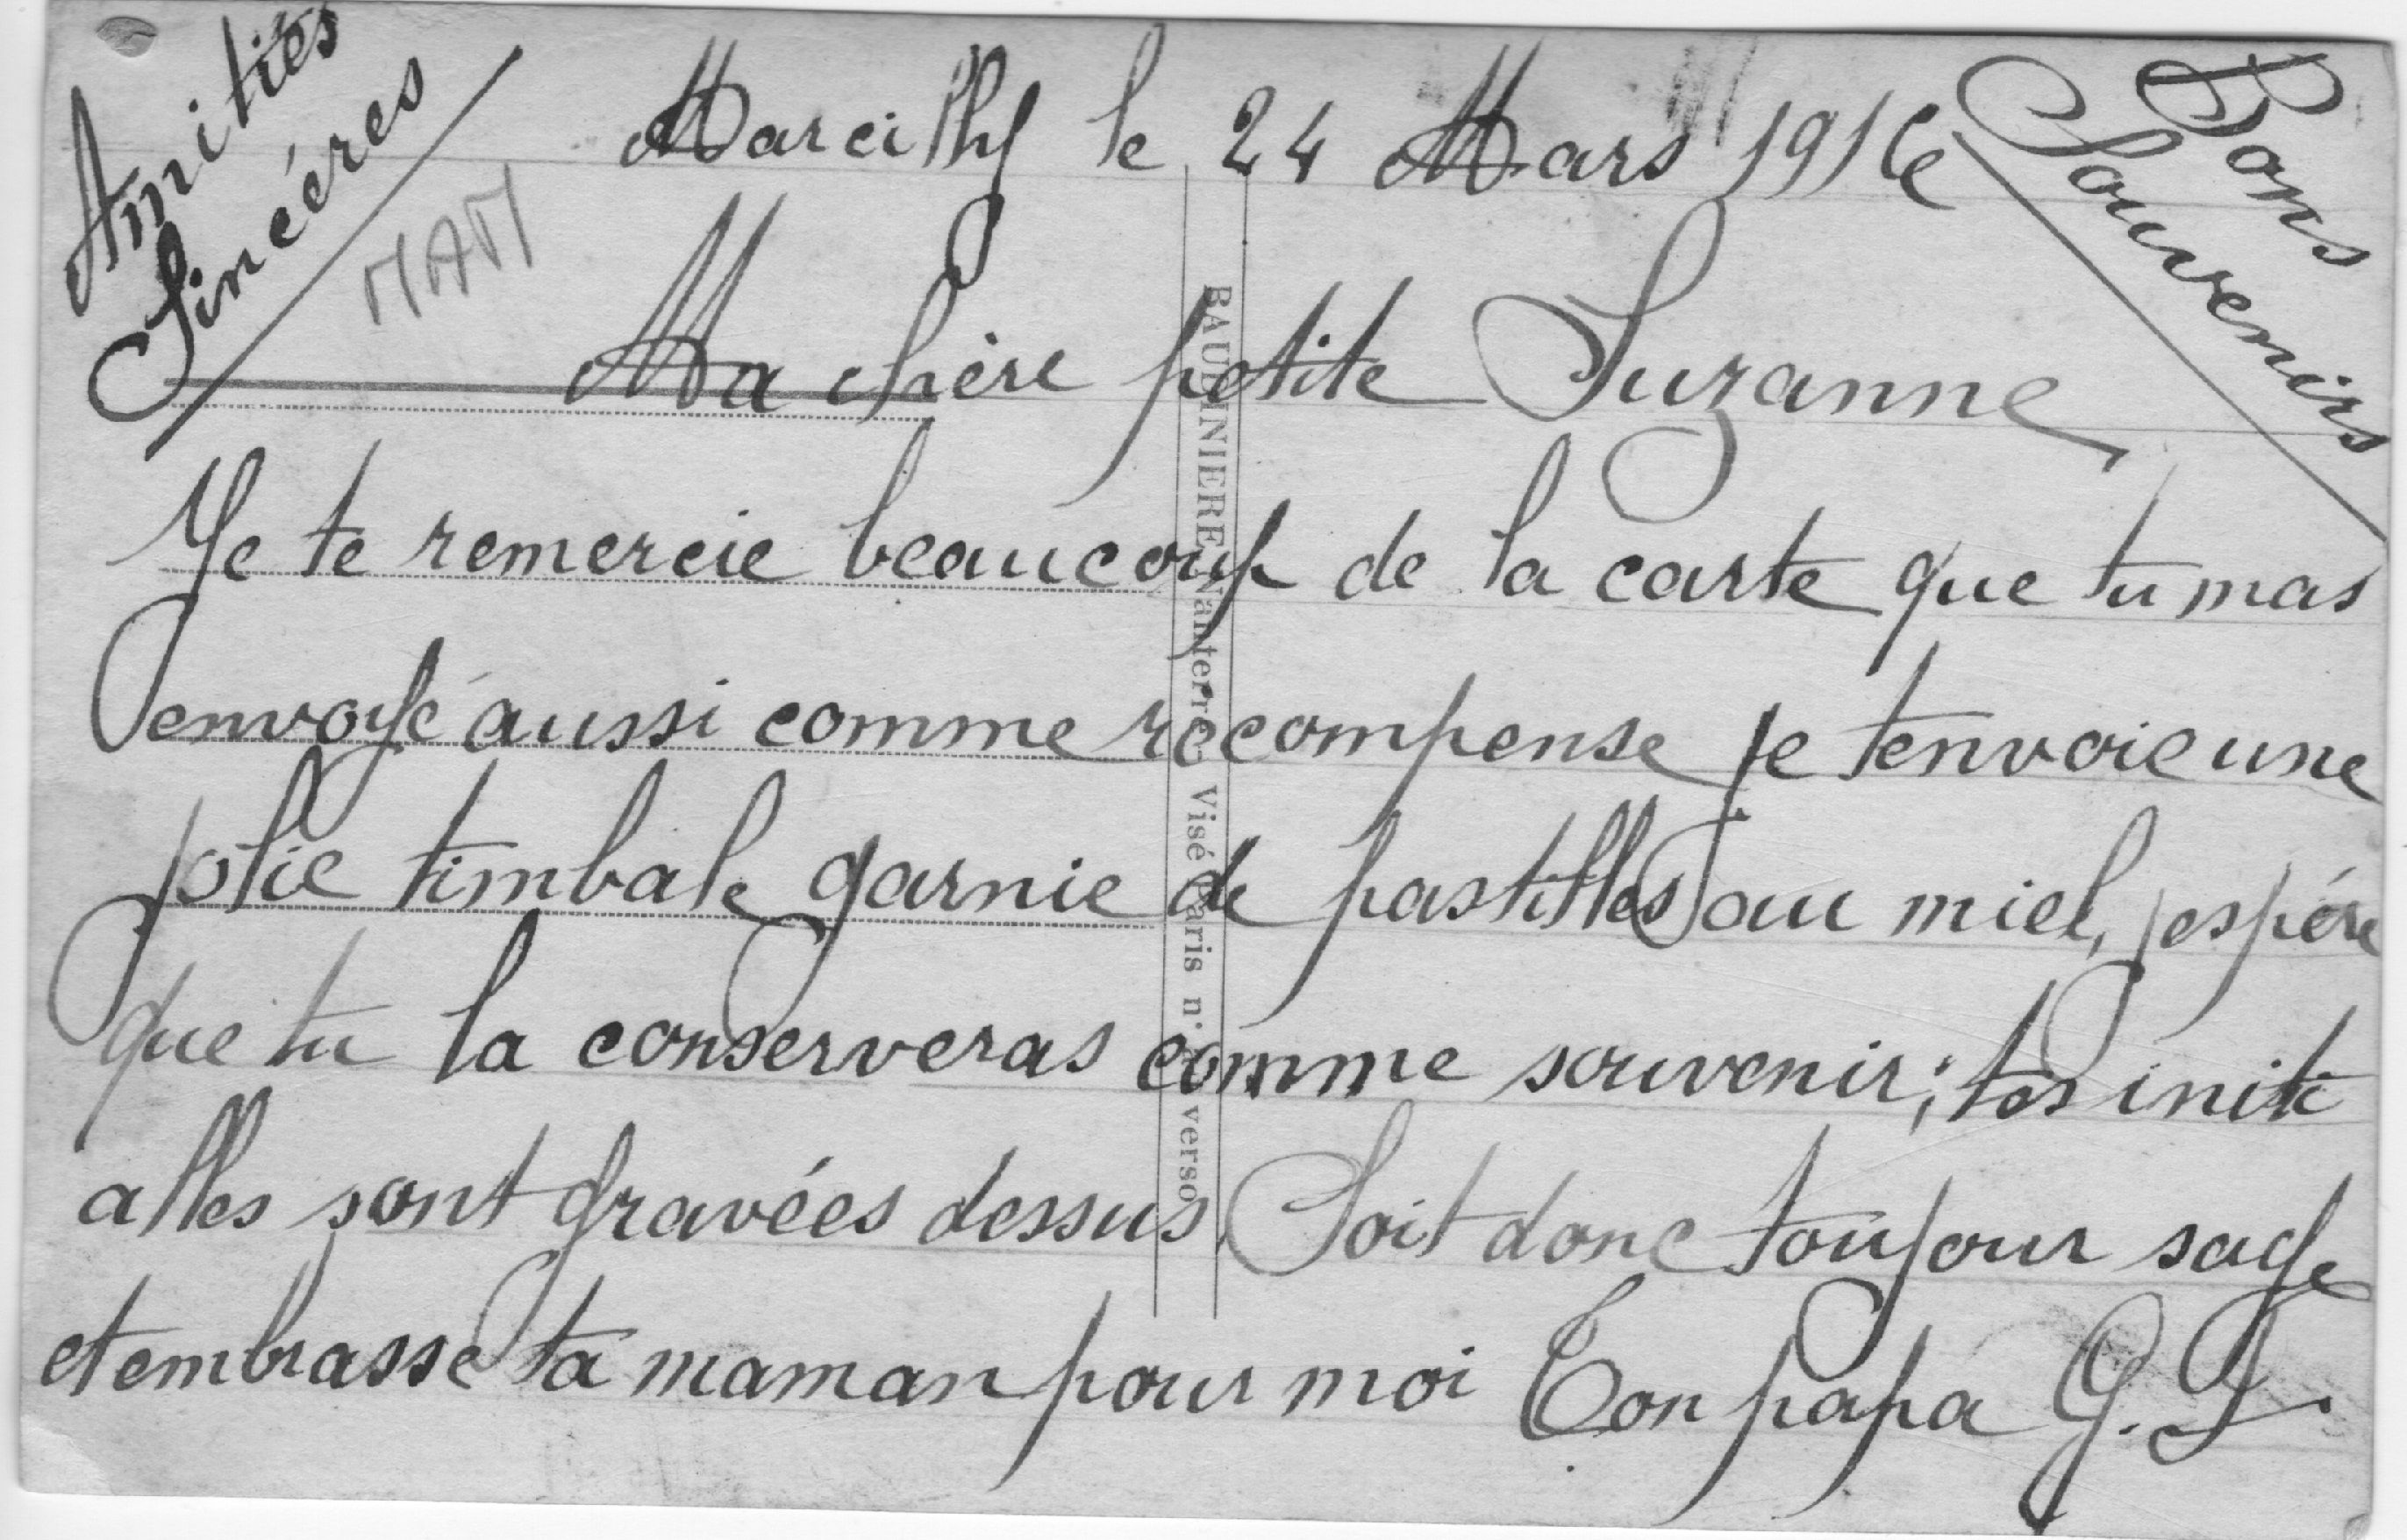 Amitiés
Sincéres
Bons
Souvenirs
Marcilly le 24 Mars 1916
MAM
Ma chère petite Suzanne
Je te remercie beaucoup de la carte que tu mas
envoyé aussi comme recompense je tenvoie une
jolie timbale garnie de pastilles au miel, jespére
que tu la conserveras comme souvenir; tes initi
alles sont gravées dessus, Soit donc toujour sage
et embrasse ta maman pour moi Ton papa G.
Nanterre Visé Paris n° verso